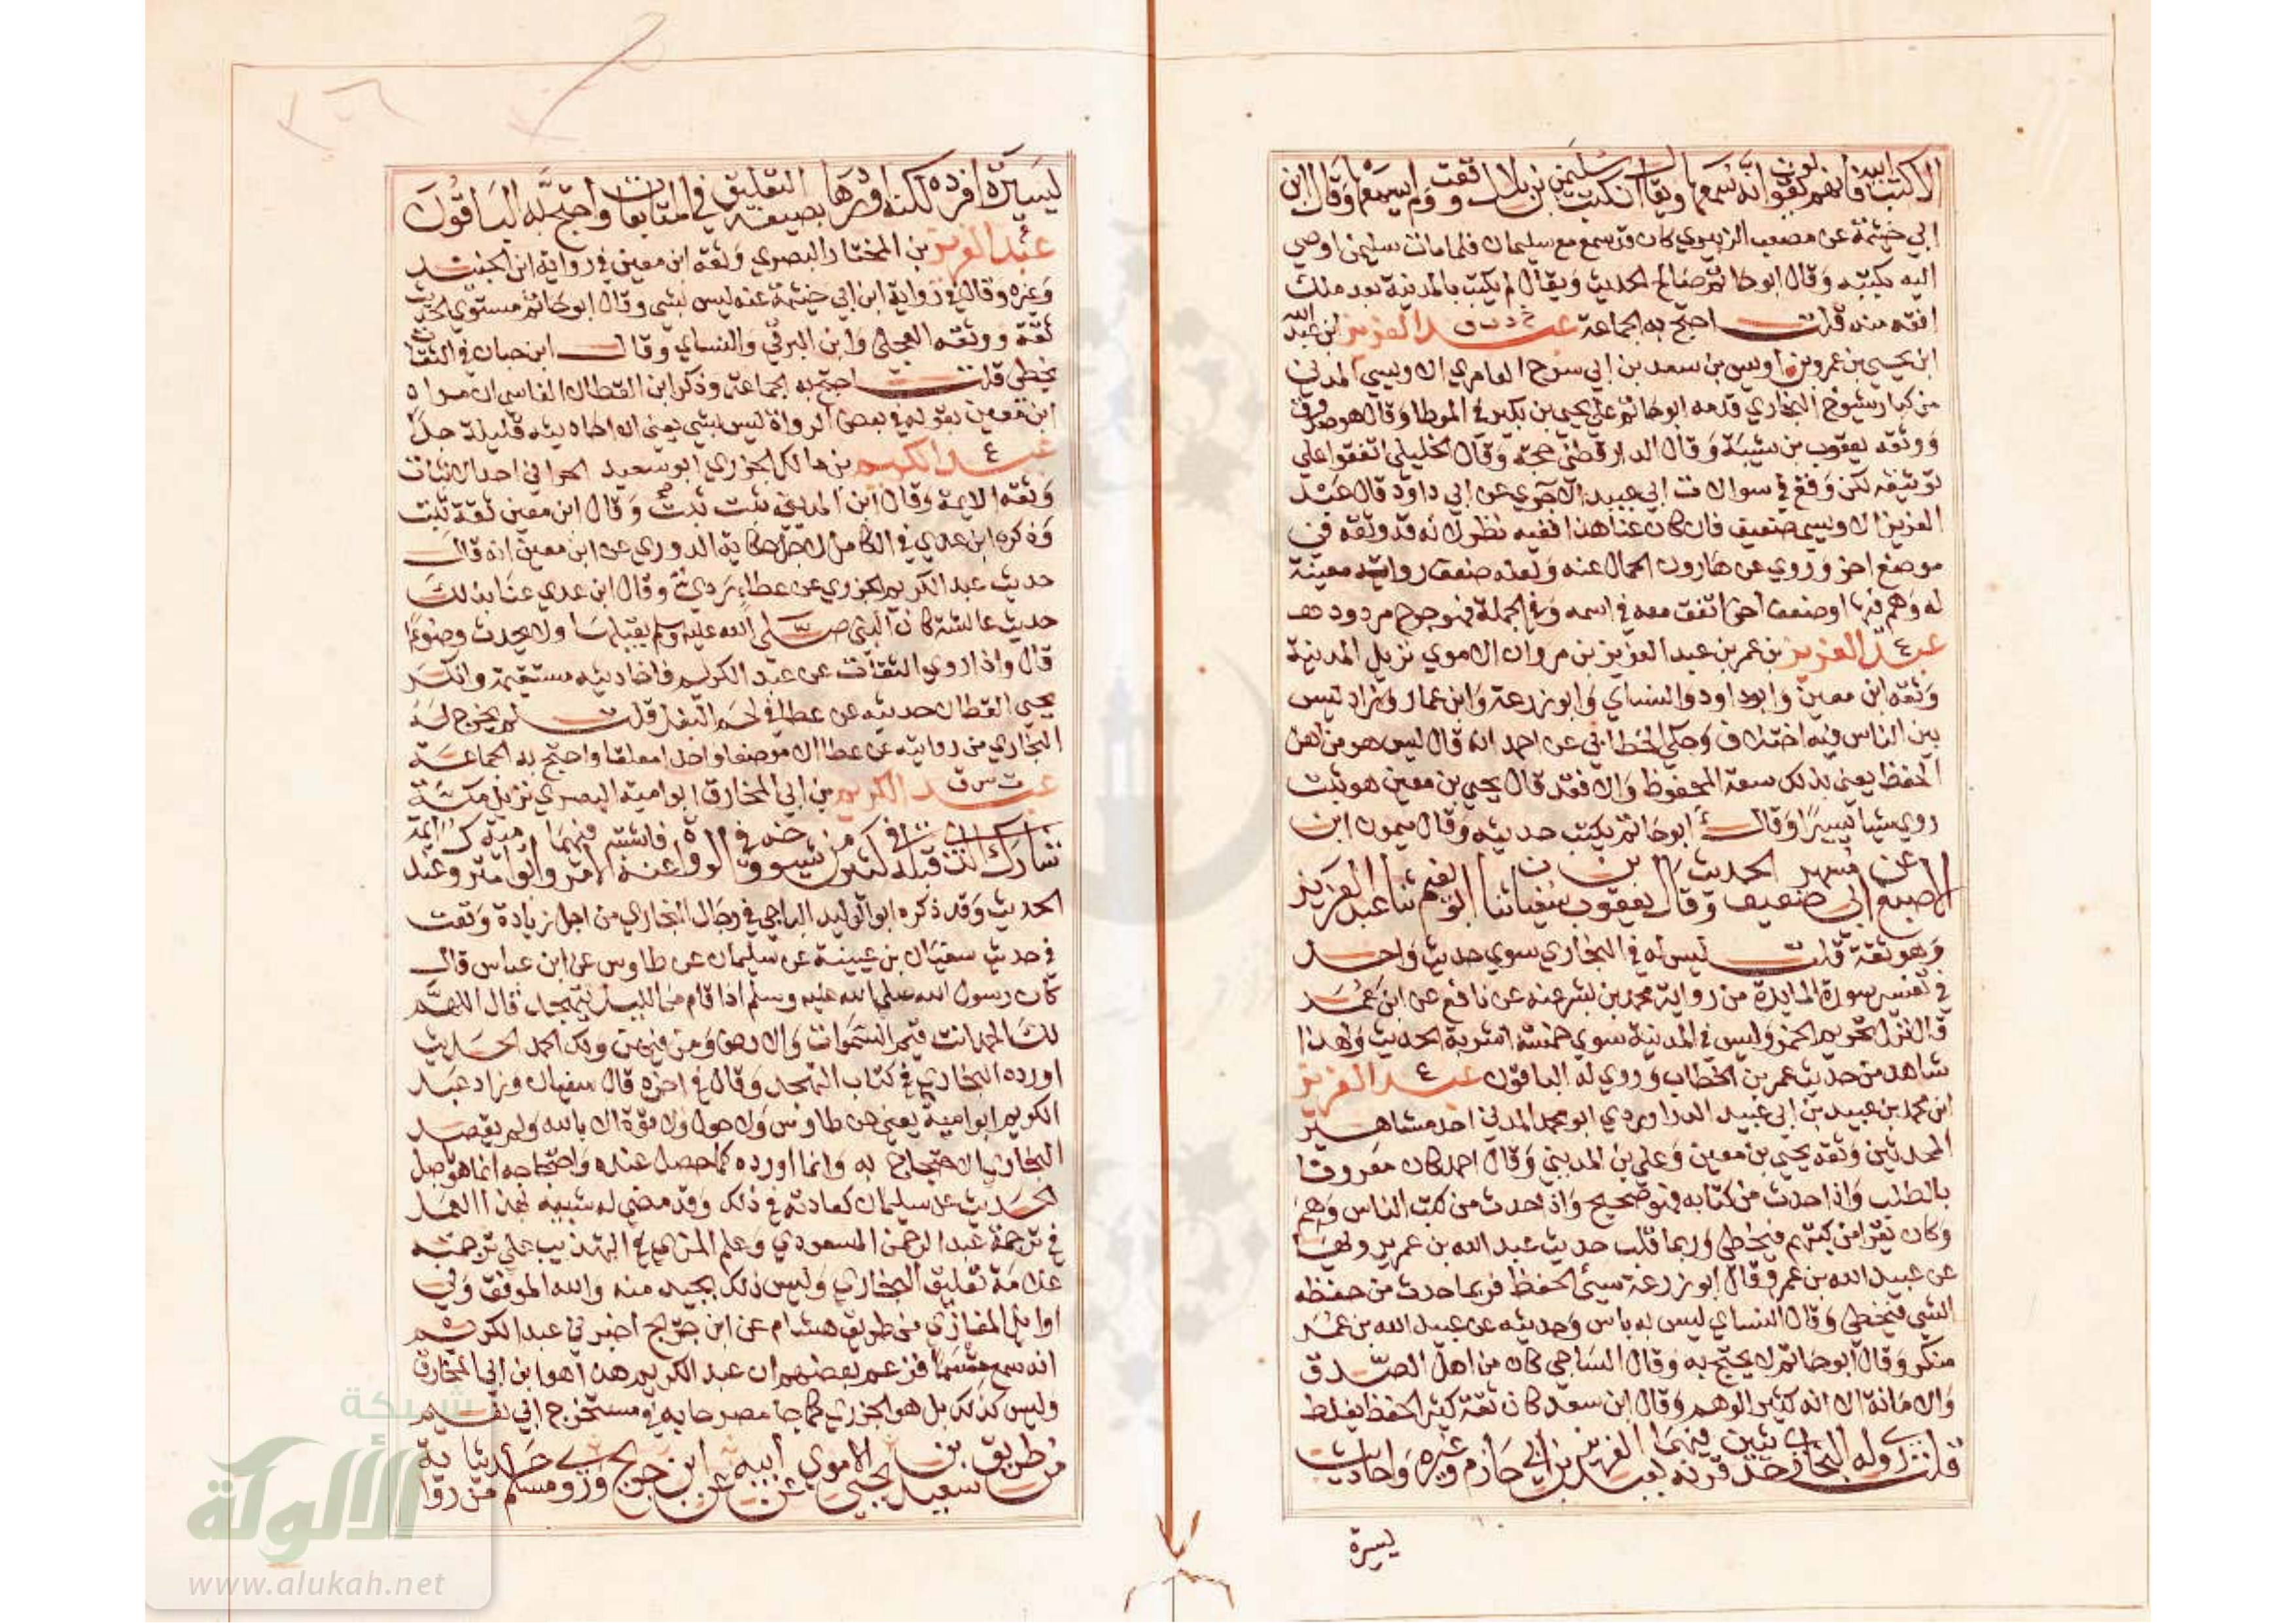 الا كتب ابيه فانهم يقولون انه سمعها ويقال ان كتب سليمن بن بلال وقعت اليه ولم يسمعها وقال ابن
ابي خيثمة عن مصعب الزبيري كان قد سمع مع سليمان فلما مات سليمن اوصي
اليه بكتبه وقال ابو حاتم صالح الحديث ويقال لم يكن بالمدينة بعد ملك
افقه منه قلت احتج به الجماعة خ د ت ق عبد العزيز ابن عبد الله
ابن يحيي بن عمرو بن اويس بن سعد بن ابي سرح العامري الاويسي المدني
من كبار شيوخ البخاري قدمه ابو حاتم علي يحيي بن بكير في الموطا وقال هو صدوق
ووثقه يعقوب بن شيبة وقال الدارقطني حجة وقال الخليلي اتفقوا علي
توثيقه لكن وقع في سوالات ابي عبيد الاجري عن ابي داود قال عبد
العزيز الاويسي ضعيف فان كان عنا هذا ففيه نظر لانه قد وثقه في
موضع اخر وروي عن هارون الحمال عنه ولعله ضعف رواية معينة
له وهم فيها او ضعف اخر اتفق معه في اسمه وفي الجملة فهو جرح مردود
ع عبد العزيز بن عمر بن عبد العزيز بن مروان الاموي نزيل المدينة
وثقه ابن معين وابو داود والنساي وابو زرعة وابن عمار وزاد ليس
بين الناس فيه اختلاف وحكي الخطابي عن احمد انه قال ليس هو من اهل
الحفظ يعني بذلك سعة المحفوظ والا فقد قال يحيي بن معين هو ثبت
روي شيا يسيرا وقال ابو حاتم يكتب حديثه وقال ميمون ابن
الاصبغ عن ابي مسهر ضعيف الحديث وقال يعقوب بن سفيان ثنا ابو نعيم ثنا عبد العزيز
وهو ثقة قلت ليس له في البخاري سوي حديث واحد
في تفسير سورة المايدة من رواية محمد بن بشر عنه عن نافع عن ابن عمر
قال نزل تحريم الخمر وليس في المدينة سوي خمسة اشربة الحديث ولهذا
شاهد من حديث عمر بن الخطاب وروي له الباقون ع عبد العزيز
ابن محمد بن عبيد بن ابي عبيد الدراوردي ابو محمد المدني احد مشاهير
المحدثين وثقه يحيي بن معين وعلي بن المديني وقال احمد كان معروفا
بالطلب واذا حدث من كتابه فهو صحيح واذا حدث من كتب الناس وهم
وكان يقرا من كتبهم فيخطي وربما قلب حديث عبد الله بن عمر يرويها
عن عبيد الله بن عمر وقال ابو زرعة سيئ الحفظ فربما حدث من حفظه
الشي فيخطي وقال النساي ليس به باس وحديثه عن عبيد الله بن عمر
منكر وقال ابو حاتم لا يحتج به وقال الساجي كان من اهل الصدق
والامانة الا انه كثير الوهم وقال ابن سعد كان ثقة كثير الحفظ يغلط
قلت روي له البخاري حديثين قرنه فيهما بعبد العزيز بن ابي حازم وغيره واحاديث
يسيرة
يسيرة افرده لكنه اوردها بصيغة التعليق في المتابعات واحتج به الباقون
ع عبد العزيز بن المختار البصري وثقه ابن معين في رواية ابن الجنيد
وغيره وقال في رواية ابن ابي خيثمة عنه ليس بشي وقال ابو حاتم مستوي الحديث
ثقة ووثقه العجلي وابن البرقي والنساي وقال ابن حبان في الثقات
يخطي قلت احتج به الجماعة وذكر ابن القطان الفاسي ان مراد
ابن معين بقوله في بعض الرواة ليس بشي يعني ان احاديثه قليلة جدا
ع عبد الكريم بن مالك الجزري ابو سعيد الحراني احد الاثبات
وثقه الايمة وقال ابن المديني ثبت ثبت وقال ابن معين ثقة ثبت
وذكره ابن عدي في الكامل لاجل حكاية الدوري عن ابن معين انه قال
حديث عبد الكريم الجزري عن عطاء ردي وقال ابن عدي عنا بذلك
حديث عايشة كان النبي صلي الله عليه وسلم يقبلها ولا يحدث وضوءا
قال واذا روي الثقات عن عبد الكريم فاحاديثه مستقيمة وانكر
يحيي القطان حديثه عن عطا في لحم البغل قلت لم يخرج له
البخاري من روايته عن عطا الا موضعا واحدا معلقا واحتج به الجماعة
خ ت س ق عبد الكريم بن ابي المخارق ابو امية البصري نزيل مكة
شارك الذي قبله في كثير من شيوخه وفي الرواة عنه فاشتبه الامر فيهما وابو امية متروك عند ايمة
الحديث وقد ذكره ابو الوليد الباجي في رجال البخاري من اجل زيادة وقعت
في حديث سفيان بن عيينة عن سليمان عن طاوس عن ابن عباس قال
كان رسول الله صلي الله عليه وسلم اذا قام من الليل يتهجد قال اللهم
لك الحمد انت قيم السموات والارض ومن فيهن ولك الحمد الحديث
اورده البخاري في كتاب التهجد وقال في اخره قال سفيان وزاد عبد
الكريم ابو امية يعني عن طاوس ولا حول ولا قوة الا بالله ولم يقصد
البخاري الاحتجاج به وانما اورده كما حصل عنده واحتجاجه انما هو باصل
الحديث عن سليمان كعادته في ذلك وقد مضي له شبيه بهذا العمل
في ترجمة عبد الرحمن المسعودي وعلم المزي في التهذيب علي ترجمته
علامة تعليق البخاري وليس ذلك بجيد منه والله الموفق وفي
اوايل المغازي من طريق هشام عن ابن جريج اخبرني عبد الكريم
انه سمع مقسما فزعم بعضهم ان عبد الكريم هذا هو ابن ابي المخارق
وليس كذلك بل هو الجزري كما جا مصرحا به في مستخرج ابي نعيم
من طريق سعيد بن يحيي الاموي عن ابيه عن ابن جريج وروي مسلم حديثا من رواية
شبكة
الألوكة
www.alukah.net